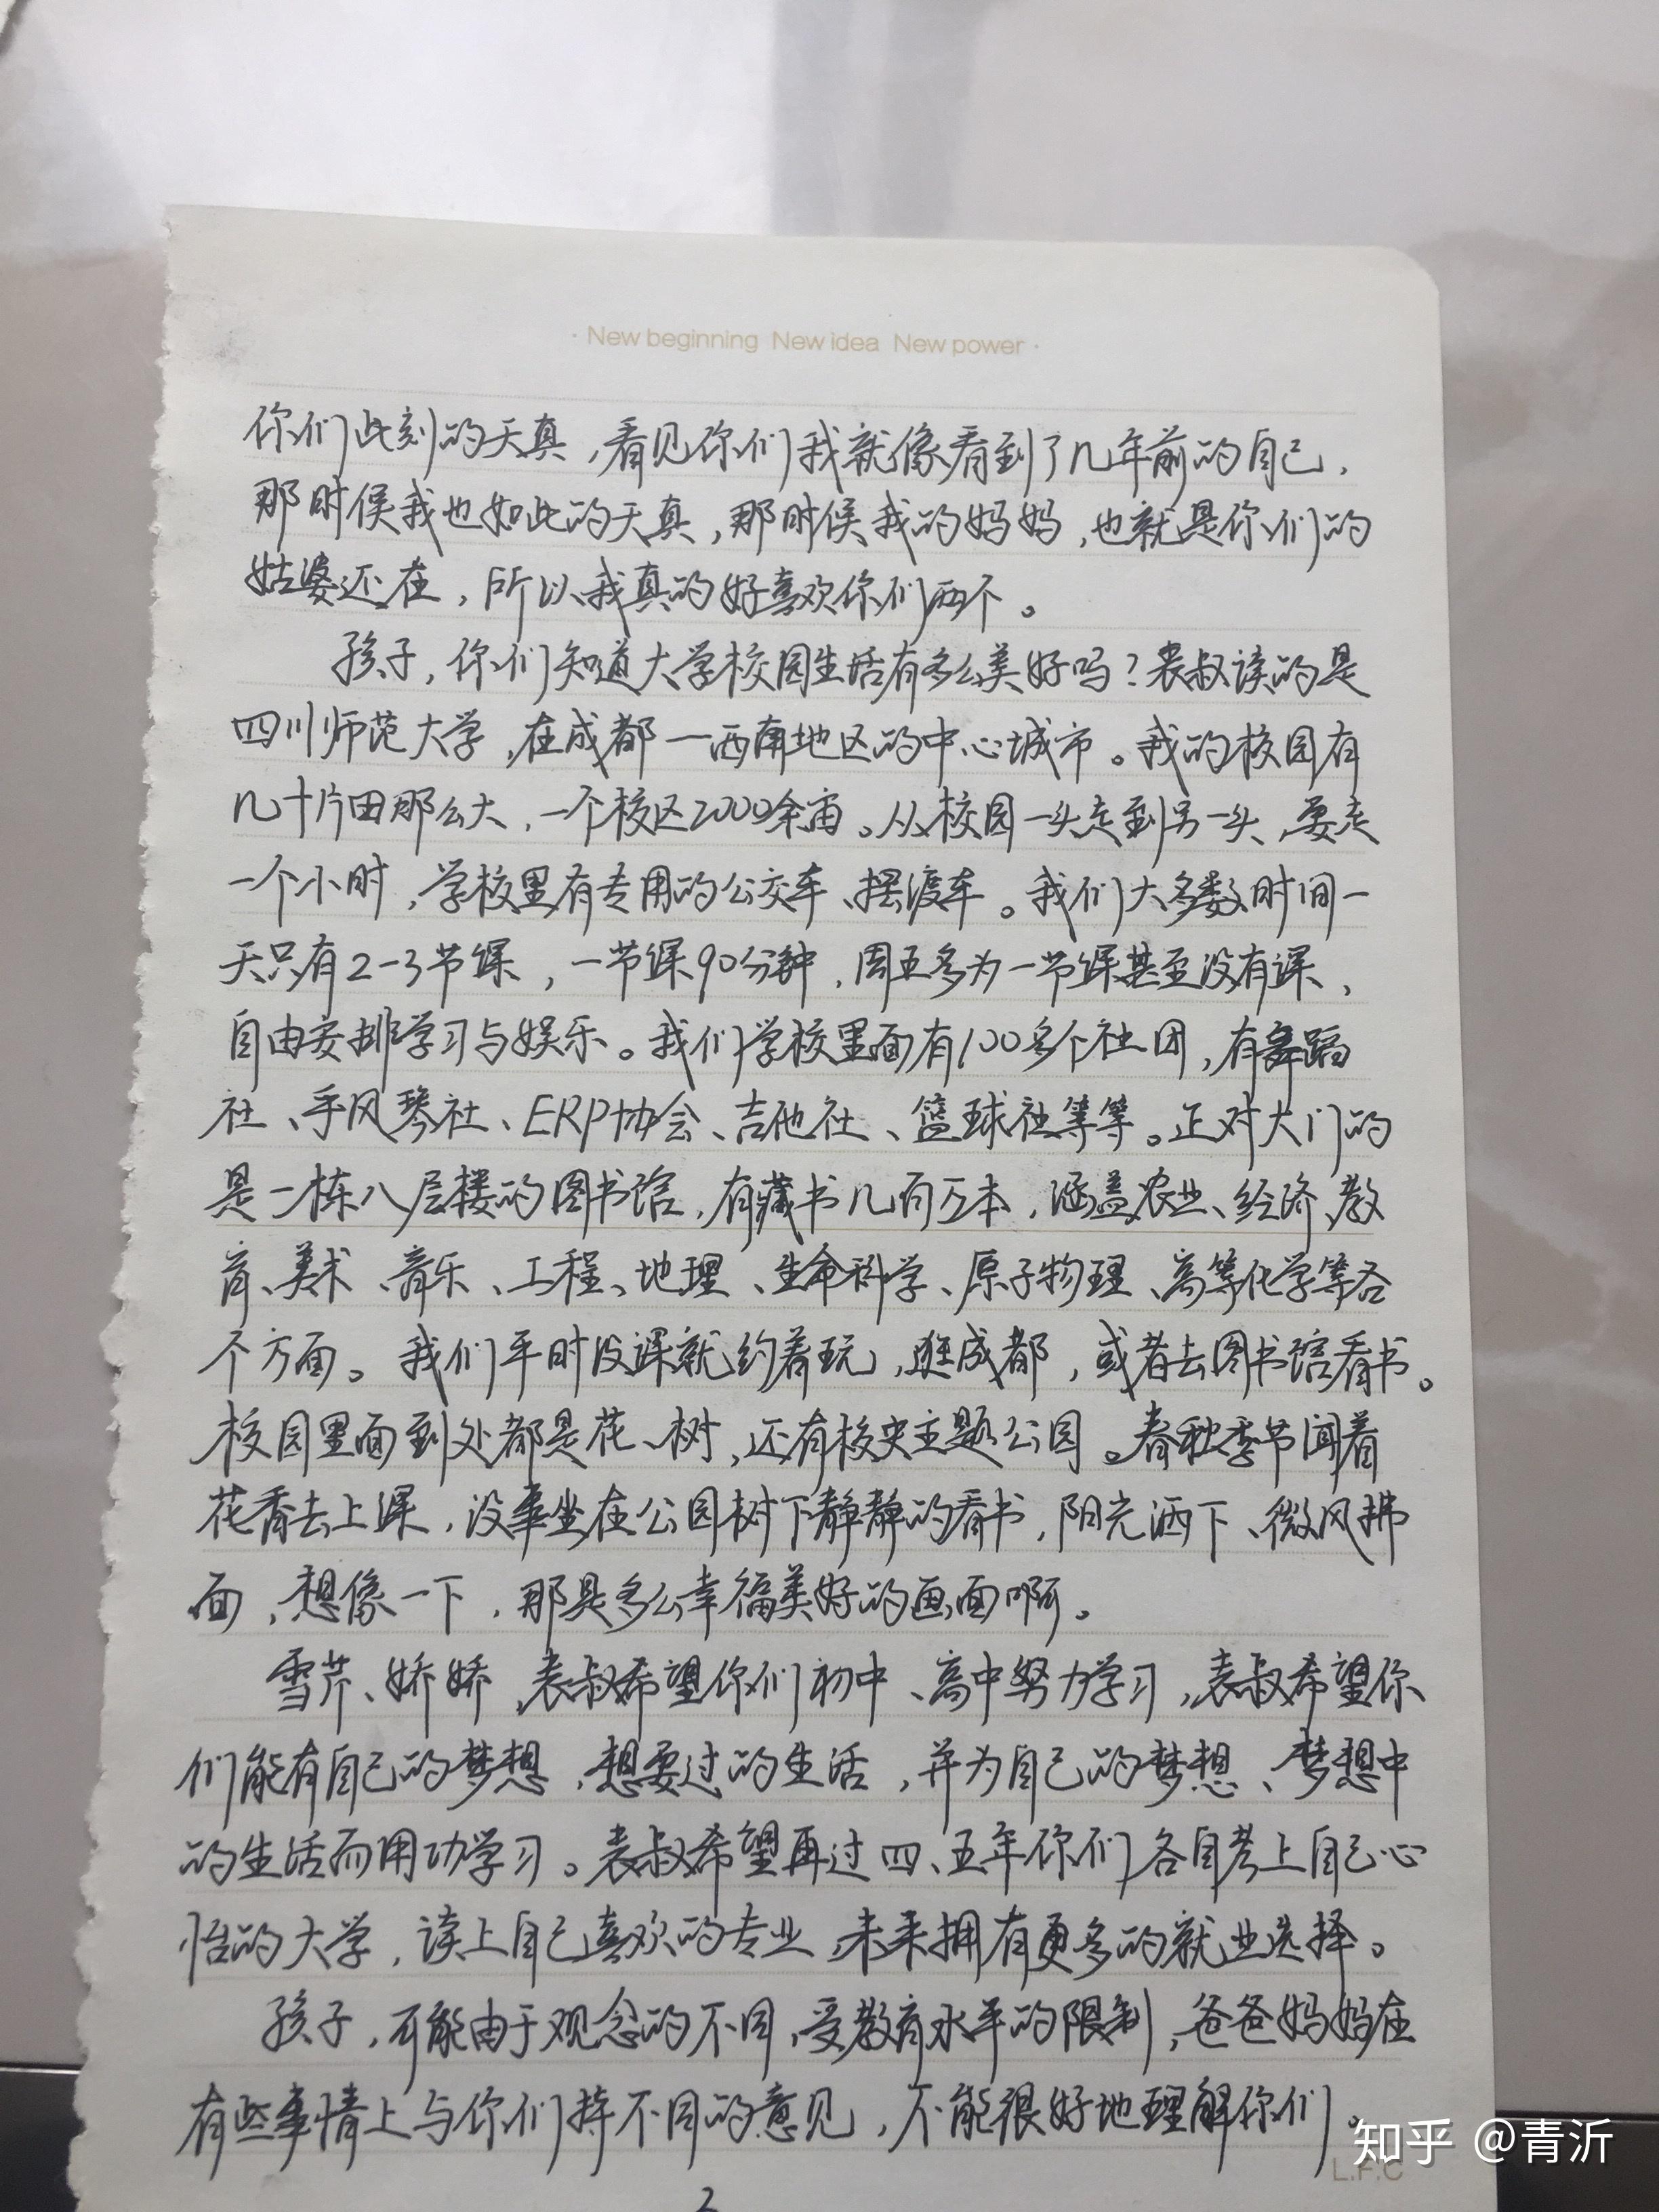 · New beginning New idea New power ·
你们此刻的天真，看见你们我就像看到了几年前的自己，
那时候我也如此的天真，那时候我的妈妈，也就是你们的
姑婆还在，所以我真的好喜欢你们两个。
孩子，你们知道大学校园生活有多么美好吗？表叔读的是
四川师范大学，在成都一西南地区的中心城市。我的校园有
几十片田那么大，一个校区2000余亩。从校园一头走到另一头，要走
一个小时，学校里有专用的公交车、摆渡车。我们大多数时间一
天只有2-3节课，一节课90分钟，周五多为一节课甚至没有课，
自由安排学习与娱乐。我们学校里面有100多个社团，有舞蹈
社、手风琴社、ERP协会、吉他社、篮球社等等。正对大门的
是一栋八层楼的图书馆，有藏书几百万本，涵盖农业、经济、教
育、美术、音乐、工程、地理、生命科学、原子物理、高等化学等各
个方面。我们平时没课就约着玩，逛成都，或者去图书馆看书。
校园里面到处都是花、树，还有校史主题公园。春秋季节闻着
花香去上课，没事坐在公园树下静静的看书，阳光洒下、微风拂
面，想像一下，那是多么幸福美好的画面啊。
雪芹、娇娇，表叔希望你们初中、高中努力学习，表叔希望你
们能有自己的梦想，想要过的生活，并为自己的梦想、梦想中
的生活而用功学习。表叔希望再过四、五年你们各自考上自己心
怡的大学，读上自己喜欢的专业，未来拥有更多的就业选择。
孩子，可能由于观念的不同，受教育水平的限制，爸爸妈妈在
有些事情上与你们持不同的意见，不能很好地理解你们。
知乎 @青沂
L.F.C
2